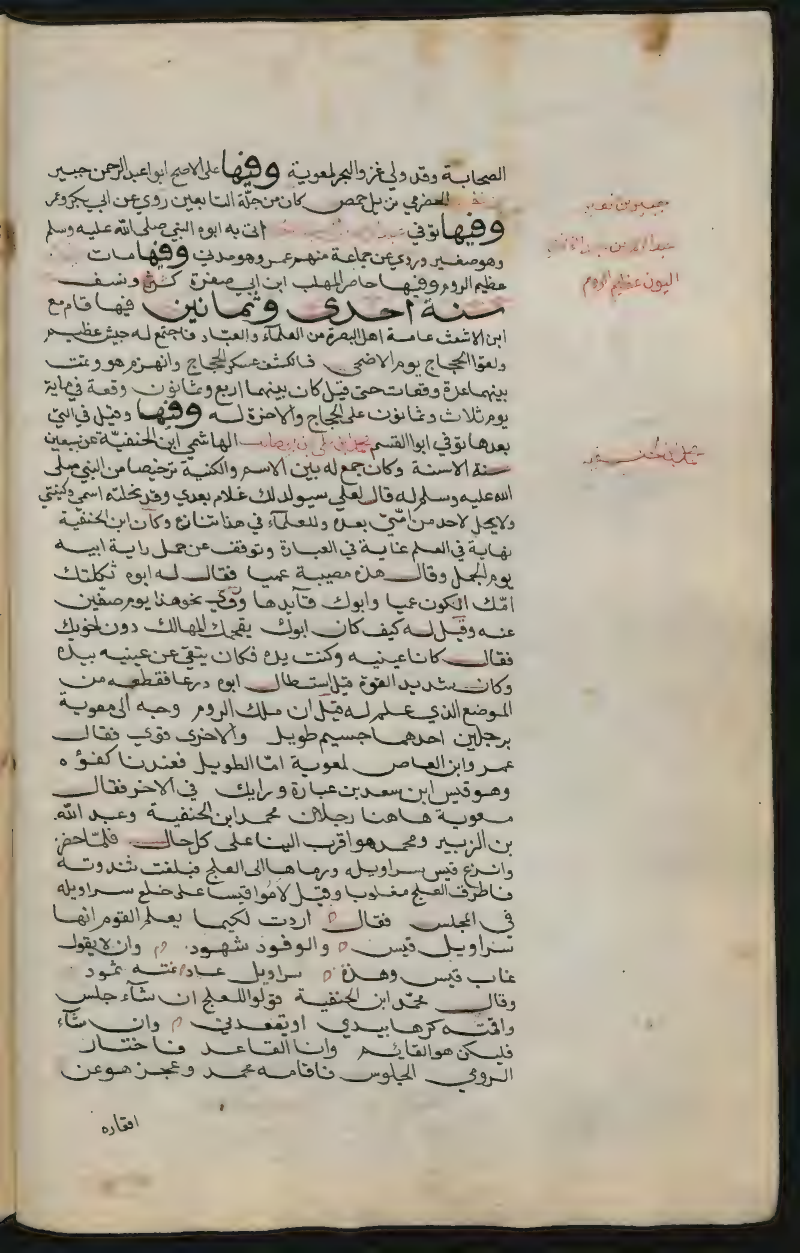 الصحابة وقد ولي غزو البحر لمعوية وفيها على الاصح ابو اعبد الرحمن جبير
الحضرمي نزيل حمص كان من جلة التابعين روي عن ابي بكر وعمر
وفيها توفي اتى به ابوه النبي صلى الله عليه وسلم
وهو صغير وروي عن جماعة منهم عمر وهو مدني وفيها مات
عظيم الروم وفيها حاصر المهلب ابن ابي صفرة كش ونسف
سنة احدى وثمانين فيها قام مع
ابن الاشعث عامة اهل البصرة من العلماء والعباد فاجتمع له جيش عظيم
ولقوا الحجاج يوم الاضحى فانكشف عسكر الحجاج وانهزم هو وتمت
بينهما عدة وقعات حتى قيل كان بينهما اربع وثمانون وقعة في ماية
يوم ثلاث وثمانون على الحجاج والاخرة له وفيها وقيل في التي
بعدها توفي ابو القسم محمد بن علي بن ابي طالب الهاشمي ابن الحنفية عن سبعين
سنة الا سنة وكان جمع له بين الاسم والكنية ترخيصا من النبي صلى
الله عليه وسلم له قال لعلي سيولد لك غلام بعدي وقد نحلته اسمي وكنيتي
ولا يحل لاحد من امتي بعده وللعلماء في هذا تنازع وكان ابن الحنفية
نهاية في العلم غاية في العبادة وتوقف عن حمل راية ابيه
يوم الجمل وقال هذه مصيبة عميا فقال له ابوه ثكلتك
امك اتكون عميا وابوك قآيدها وروي نحو هذا يوم صفين
عنه وقيل له كيف كان ابوك يقحمك المهالك دون اخويك
فقال كانا عينيه وكنت يده فكان يتقي عن عينيه بيده
وكان شديد القوة قيل استطال ابوه درعا فقطعه من
الموضع الذي علم له قيل ان ملك الروم وجه الى معوية
برجلين احدهما جسيم طويل والاخرى قوي فقال
عمر وابن العاص لمعوية اما الطويل فعندنا كفؤه
وهو قيس ابن سعد بن عبادة ورايك في الاخر فقال
معوية هاهنا رجلان محمد ابن الحنفية وعبد الله
بن الزبير ومحمد هو اقرب الينا على كل حال فلما حضر
وانزع قيس سراويله ورماها الى العلج فبلغت ثندوته
فاطرف العلج مغلوبا وقيل لاموا قيسا على خلع سراويله
في المجلس فقال اردت لكيما يعلم القوم انها
سراويل قيس والوفود شهود وان لا يقول
غاب قيس وهذه سراويل عاد نمته ثمود
وقال محمد ابن الحنفية قولوا للعلج ان شآء جلس
واقمته كرها بيدي او يقعدني وان شآء
فليكن هو القائم وانا القاعد فاختار
الرومي الجلوس فاقامه محمد وعجز هو عن
اقعاده
جبير بن نفير
اليون عظيم الروم